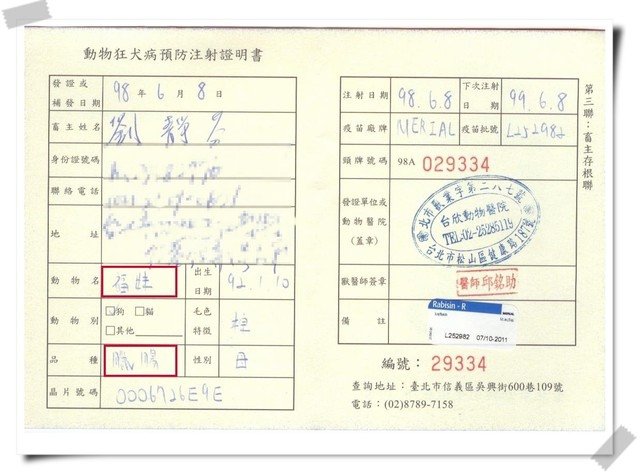 動物狂犬病預防注射證明書
發證或補發日期 98 年 6 月 8 日
畜主姓名 劉靜
身份證號碼
聯絡電話
地址
動物名 福娃 出生日期 92.1.10
動物別 ☑狗 □貓 □其他 毛色特徵 棕
品種 臘腸 性別 母
晶片號碼 0006726E9E
注射日期 98.6.8 下次注射日期 99.6.8
疫苗廠牌 MERIAL 疫苗批號 L252982
頸牌號碼 98A 029334
發證單位或動物醫院（蓋章）
北市獸業字第二八七號
台欣動物醫院
TEL:02-25285119
台北市松山區健康路187號
獸醫師簽章 醫師邱銘助
備註
Rabisin - R
MERIAL
L252982 07/10-2011
編號：29334
查詢地址：臺北市信義區吳興街600巷109號
電話：(02)8789-7158
第三聯：畜主存根聯